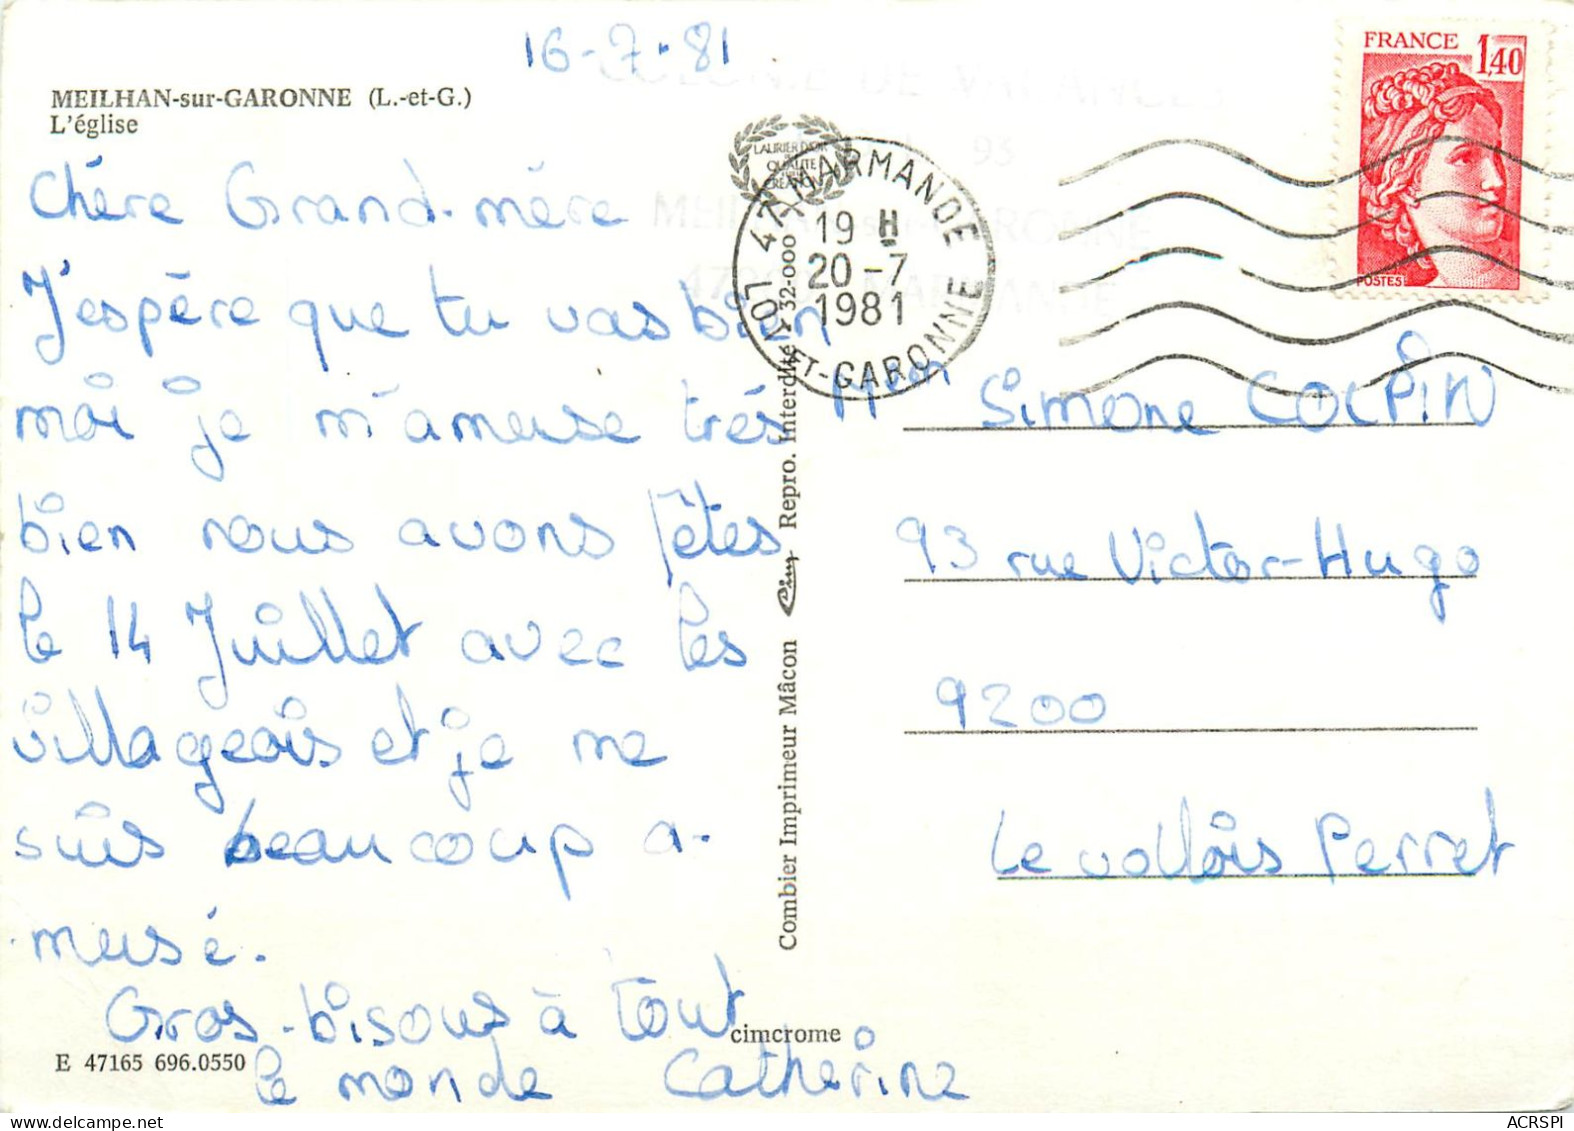 16-7-81
MEILHAN-sur-GARONNE (L.-et-G.)
L'église
Chére Grand-mére
J'espère que tu vas bien
moi je m'ameuse trés
bien nous avons fêtes
le 14 Juillet avec les
villageois et je me
suis beaucoup a-
meusé.
Gros-bisous à tout
le monde Catherine
E 47165 696.0550
cimcrome
Combier Imprimeur Mâcon Cim Repro. Interdite 732-000
LAURIER D'OR
QUALITE
CREATION
COLONIE DE VACANCES
93
MEILHAN-sur-GARONNE
MARMANDE
47 MARMANDE
19 H
20-7
1981
LOT-ET-GARONNE
FRANCE 1,40
POSTES
Simone COLPIN
93 rue Victor-Hugo
9200
Levallois Perret
ACRSPI